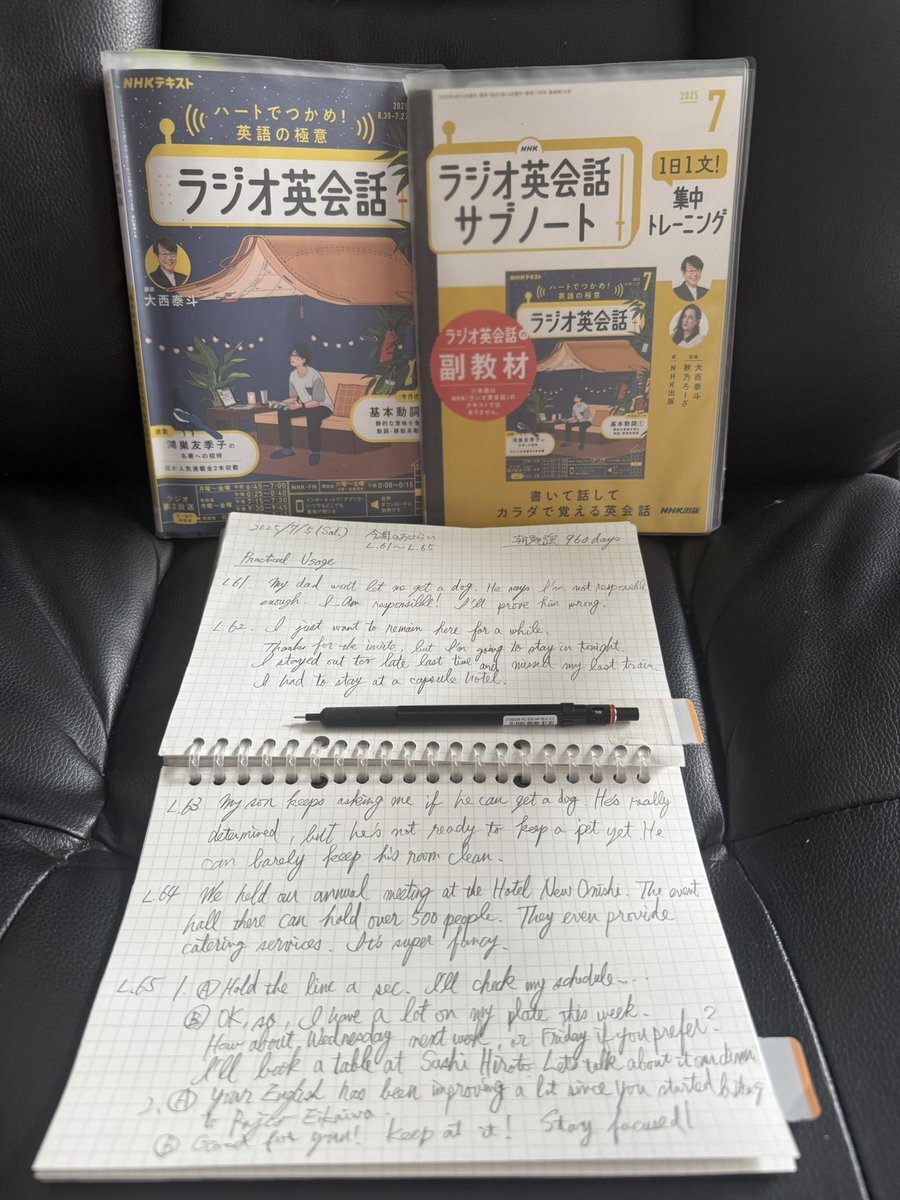 NHKテキスト
2025
6.30-7.27
ハートでつかめ!
英語の極意
ラジオ英会話
講師
大西泰斗
基本動詞
連載
鴻巣友季子の
名著への招待
ほか人気連載全2本収載
ラジオ
第2放送
月曜~金曜
午前6:45~7:00
午後0:25~0:40
NHK-FM
午前0:00~0:15
2025
7
1日1文!
集中
トレーニング
NHK
ラジオ英会話
サブノート
NHKテキスト
ハートでつかめ!
英語の極意
7
ラジオ英会話
大西泰斗
秋乃ろーざ
NHK出版
ラジオ英会話の
副教材
基本動詞①
鴻巣友季子の
書いて話して
カラダで覚える英会話
NHK出版
2025/7/5 (Sat.)
今週のおさらい
L.61~L.65
朝勉強 960days
Practical Usage
L.61 My dad won't let me get a dog. He says I'm not responsible
enough. I am responsible! I'll prove him wrong.
L.62 I just want to remain here for a while.
Thanks for the invite, but I'm going to stay in tonight.
I stayed out too late last time and missed my last train.
I had to stay at a capsule hotel.
L.63 My son keeps asking me if he can get a dog. He's really
determined, but he's not ready to keep a pet yet. He
can barely keep his room clean.
L.64 We held our annual meeting at the Hotel New Onishi. The event
hall there can hold over 500 people. They even provide
catering services. It's super fancy.
L.65 1. Ⓐ Hold the line a sec. I'll check my schedule....
Ⓑ OK, so, I have a lot on my plate this week.
How about Wednesday next week, or Friday if you prefer?
I'll book a table at Sushi Hiroto. Let's talk about it over dinner.
2. Ⓐ Your English has been improving a lot since you started listening
to Rajio Eikaiwa.
Ⓑ Good for you! Keep at it! Stay focused!